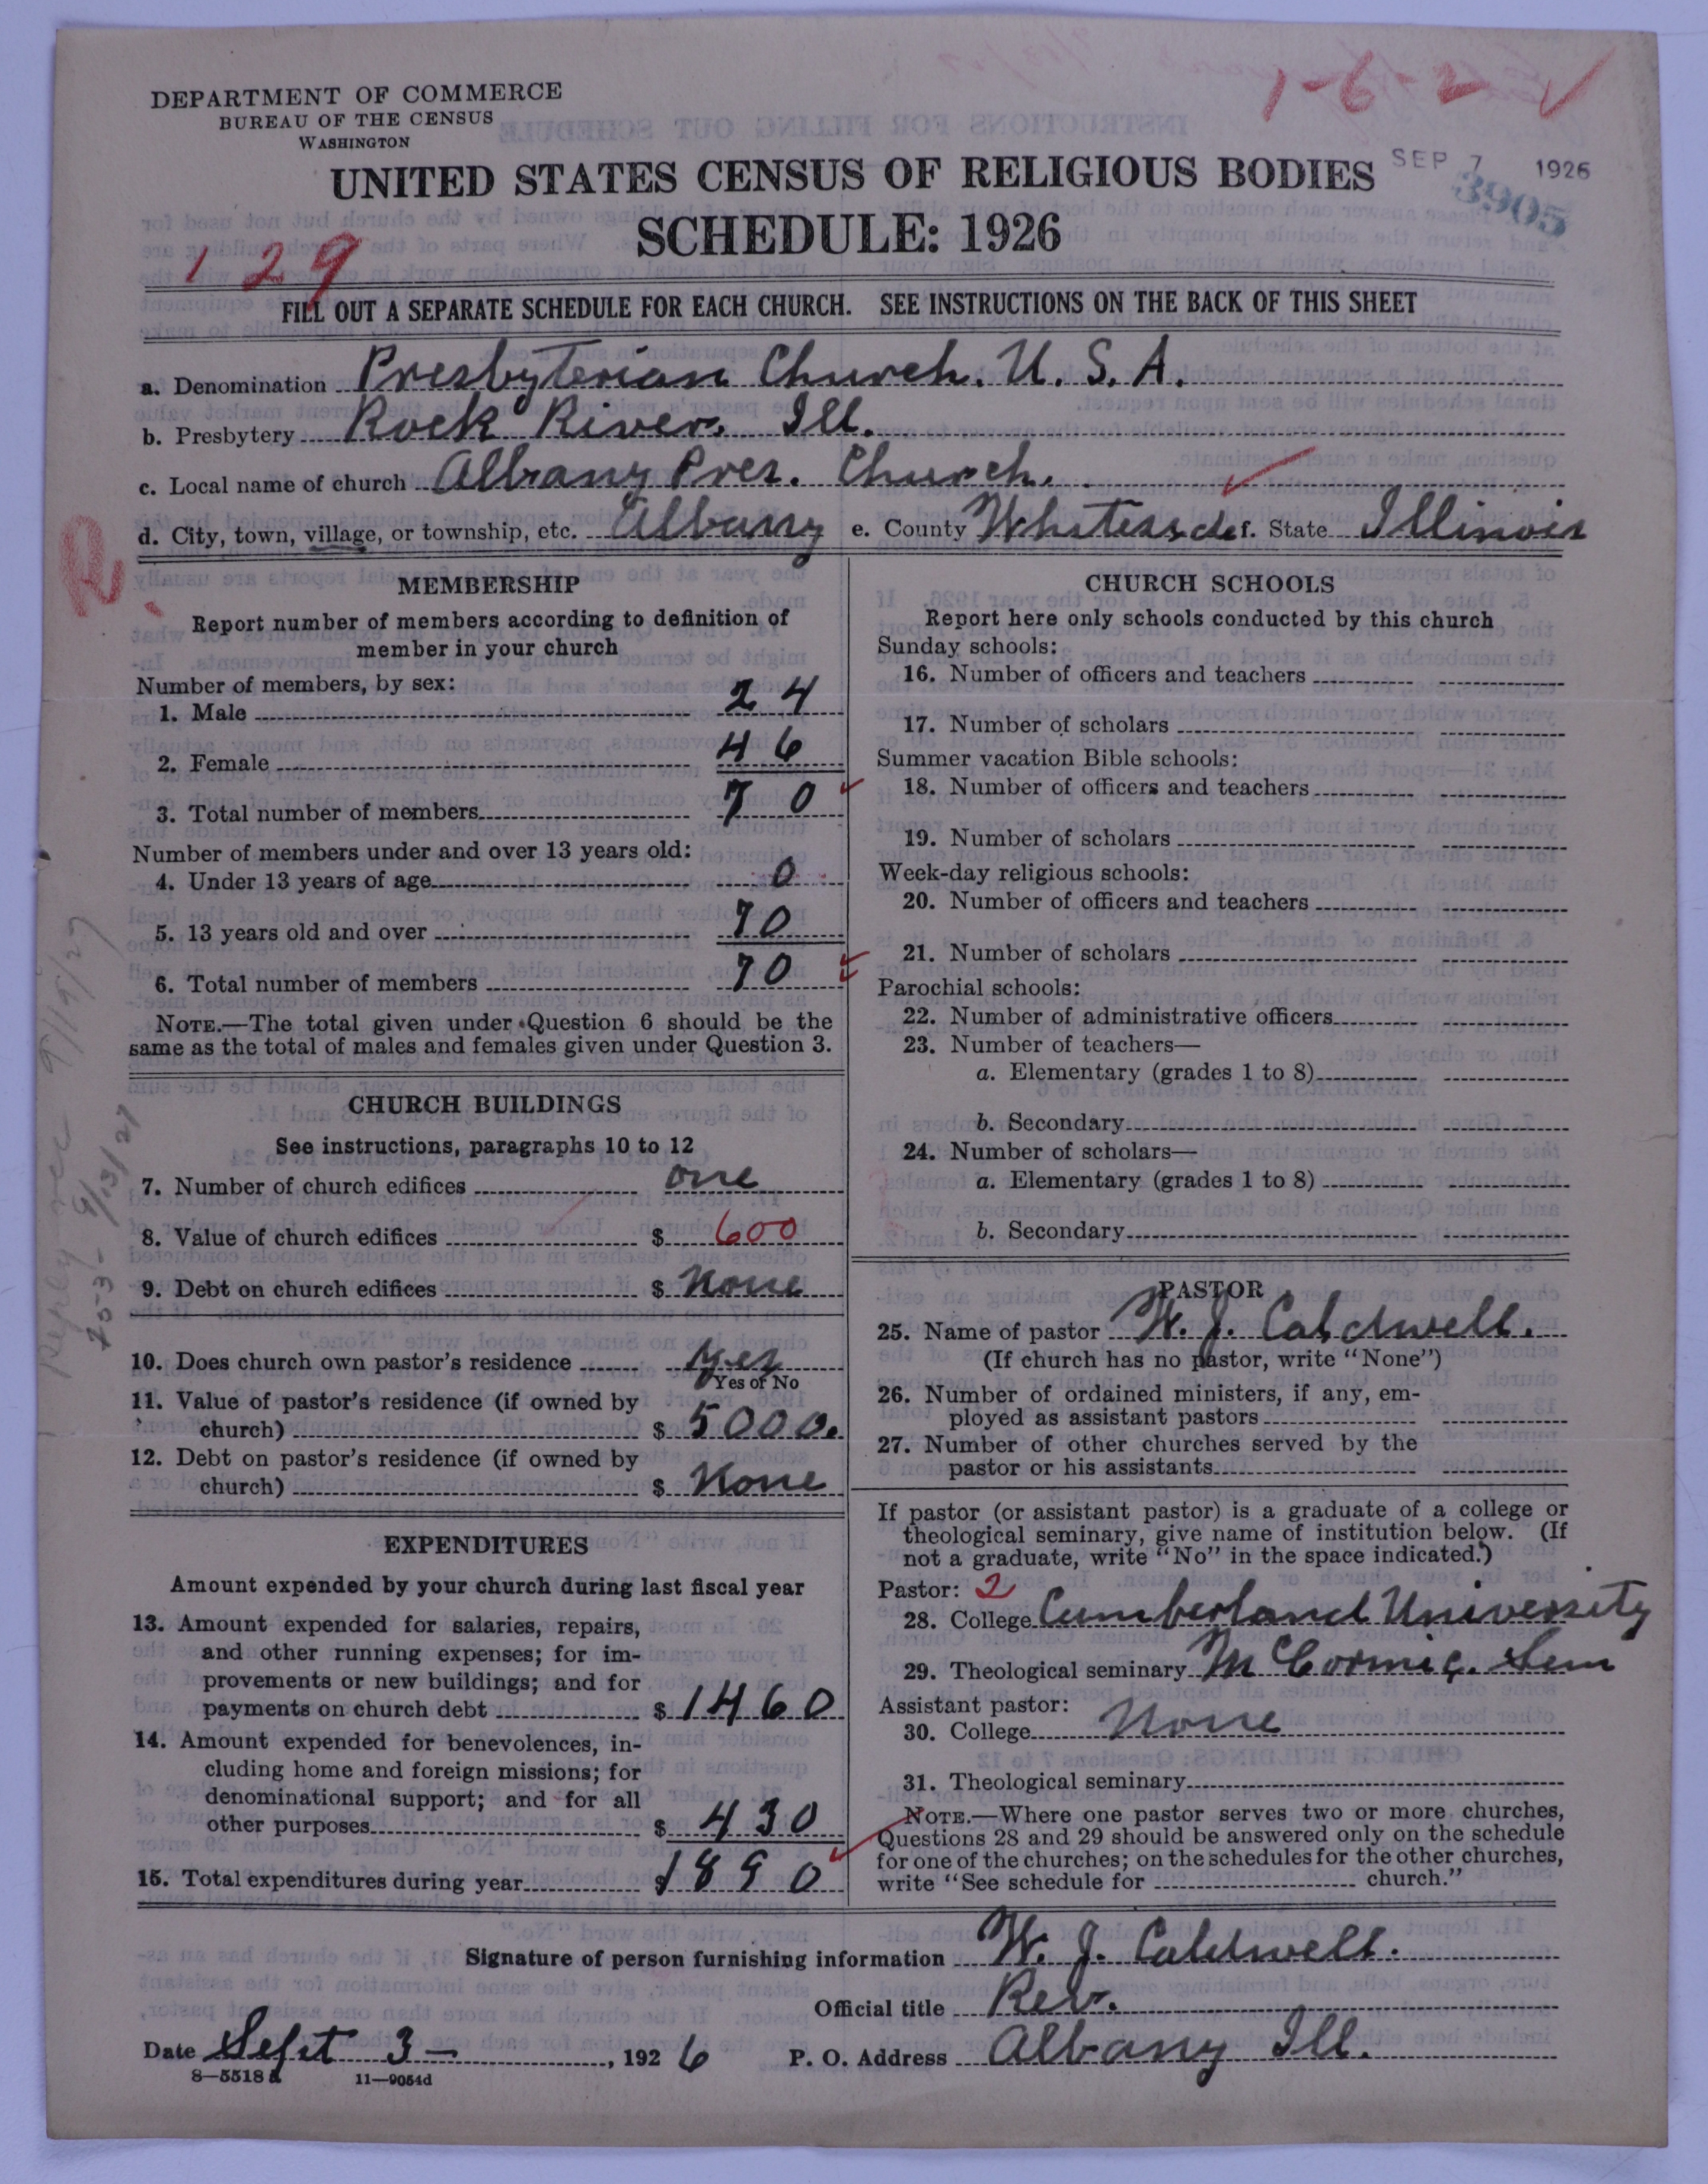 1-6-2 ✓
DEPARTMENT OF COMMERCE
BUREAU OF THE CENSUS
WASHINGTON
UNITED STATES CENSUS OF RELIGIOUS BODIES
SEP 7 1926
3905
SCHEDULE: 1926
129
FILL OUT A SEPARATE SCHEDULE FOR EACH CHURCH. SEE INSTRUCTIONS ON THE BACK OF THIS SHEET
a. Denomination Presbyterian Church. U. S. A.
b. Presbytery Rock River. Ill.
c. Local name of church Albany Pres. Church.
d. City, town, village, or township, etc. Albany e. County Whiteside f. State Illinois
R.
MEMBERSHIP
Report number of members according to definition of
member in your church
Number of members, by sex:
1. Male 24
2. Female 46
3. Total number of members 70
Number of members under and over 13 years old:
4. Under 13 years of age 0
5. 13 years old and over 70
6. Total number of members 70
NOTE.—The total given under Question 6 should be the
same as the total of males and females given under Question 3.
CHURCH BUILDINGS
See instructions, paragraphs 10 to 12
7. Number of church edifices one
8. Value of church edifices $ 600
9. Debt on church edifices $ None
10. Does church own pastor's residence yes
Yes or No
11. Value of pastor's residence (if owned by
church) $ 5000.
12. Debt on pastor's residence (if owned by
church) $ None
EXPENDITURES
Amount expended by your church during last fiscal year
13. Amount expended for salaries, repairs,
and other running expenses; for im-
provements or new buildings; and for
payments on church debt $ 1460
14. Amount expended for benevolences, in-
cluding home and foreign missions; for
denominational support; and for all
other purposes $ 430
15. Total expenditures during year $ 1890
CHURCH SCHOOLS
Report here only schools conducted by this church
Sunday schools:
16. Number of officers and teachers
17. Number of scholars
Summer vacation Bible schools:
18. Number of officers and teachers
19. Number of scholars
Week-day religious schools:
20. Number of officers and teachers
21. Number of scholars
Parochial schools:
22. Number of administrative officers
23. Number of teachers—
a. Elementary (grades 1 to 8)
b. Secondary
24. Number of scholars—
a. Elementary (grades 1 to 8)
b. Secondary
PASTOR
25. Name of pastor W. J. Caldwell.
(If church has no pastor, write "None")
26. Number of ordained ministers, if any, em-
ployed as assistant pastors
27. Number of other churches served by the
pastor or his assistants
If pastor (or assistant pastor) is a graduate of a college or
theological seminary, give name of institution below. (If
not a graduate, write "No" in the space indicated.)
Pastor: 2
28. College Cumberland University
29. Theological seminary McCormic. Sem
Assistant pastor:
30. College None
31. Theological seminary
NOTE.—Where one pastor serves two or more churches,
Questions 28 and 29 should be answered only on the schedule
for one of the churches; on the schedules for the other churches,
write "See schedule for church."
Signature of person furnishing information W. J. Caldwell.
Official title Rev.
Date Sept 3—, 1926 P. O. Address Albany Ill.
8—5518a 11—9054d